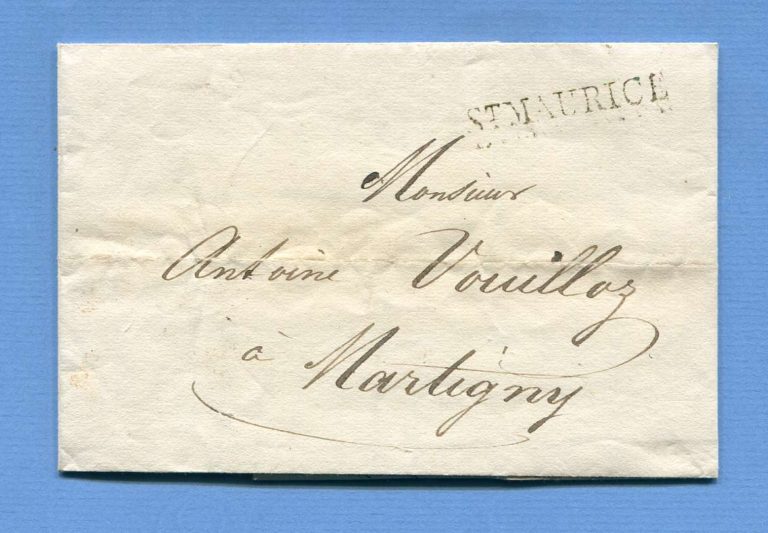 ST MAURICE
Monsieur
Antoine Vouilloz
à Martigny